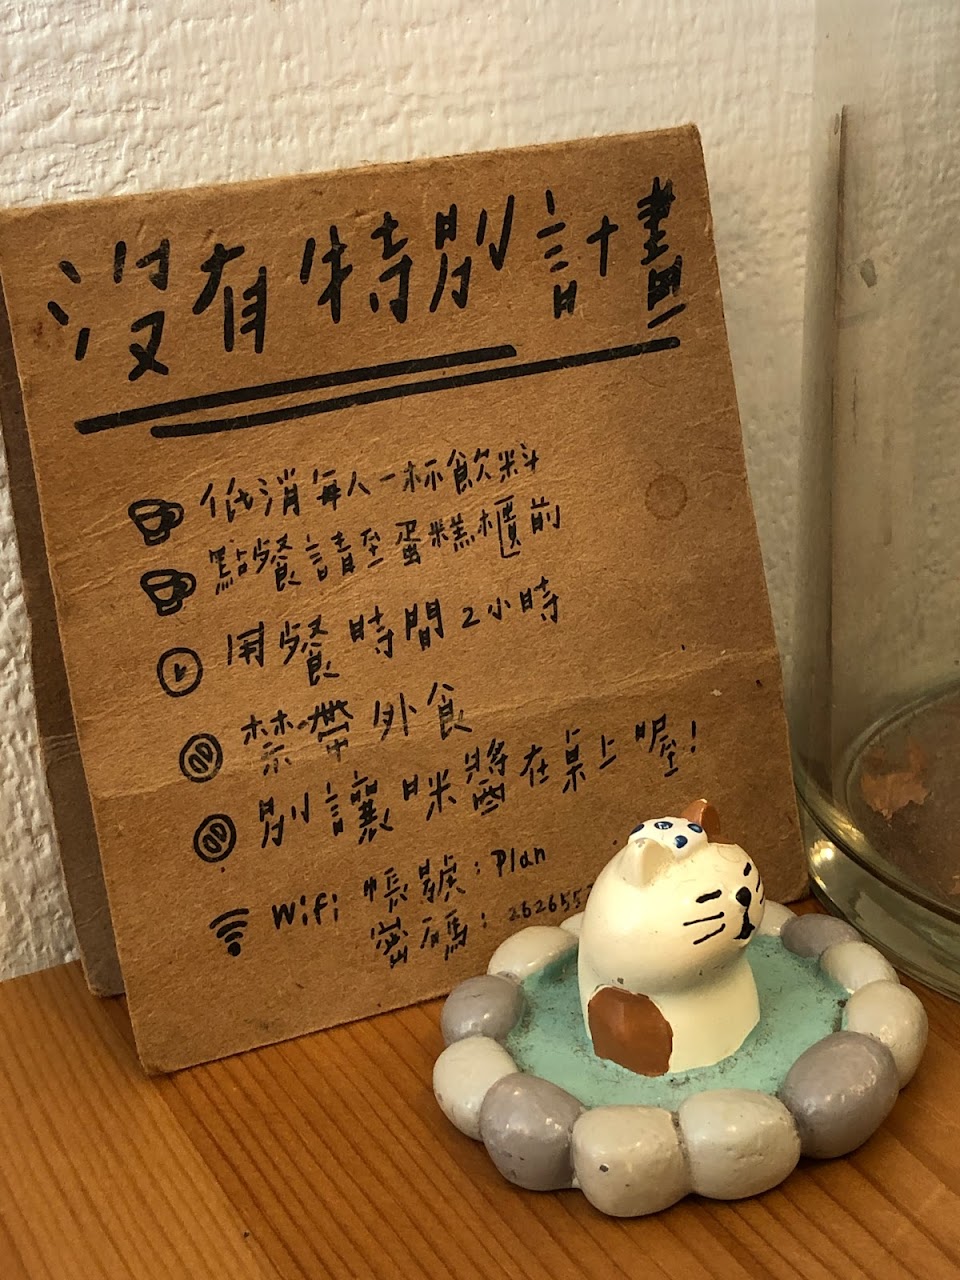 沒有特別計畫
低消每人一杯飲料
點餐請至蛋糕櫃前
用餐時間2小時
禁帶外食
別讓咪醬在桌上喔！
Wifi 帳號：Plan
密碼：262655